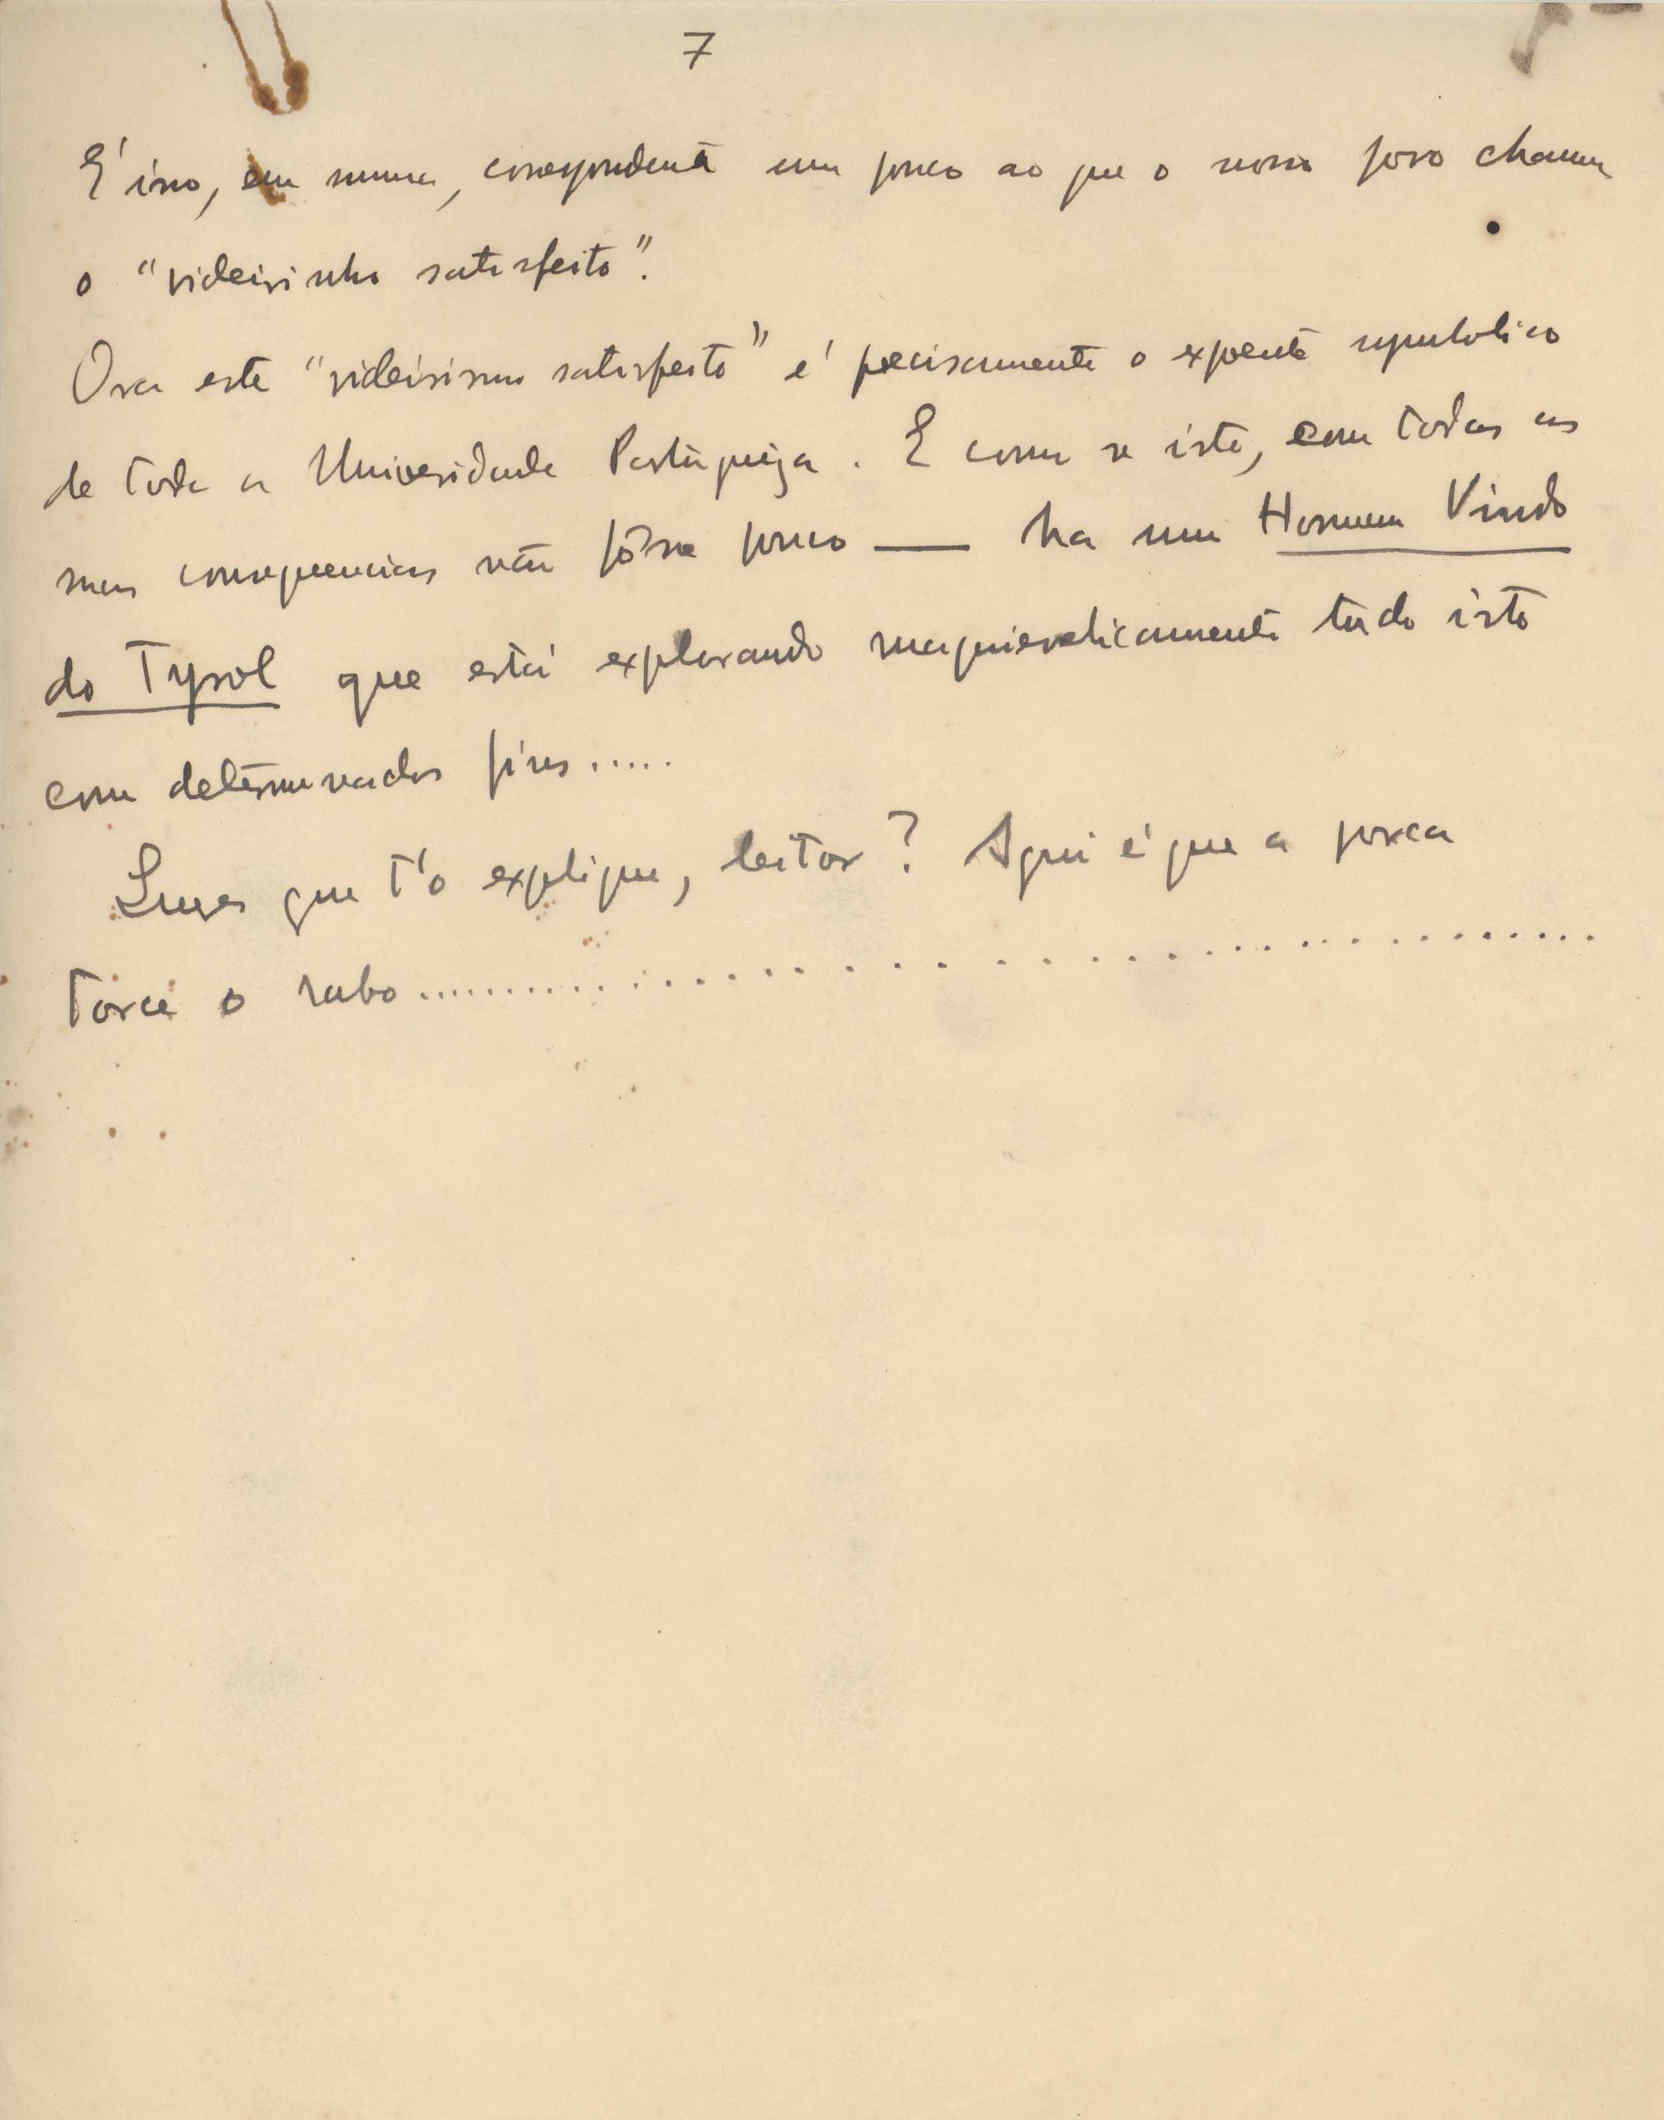 7
E' isso, em summa, correspondente um pouco ao que o nosso povo chama
o "videirinho satisfeito".
Ora este "videirismo satisfeito" é precisamente o expoente symbolico
de toda a Universidade Portugueza. E como se isto, com todas as
suas consequencias não fôsse pouco — ha um Homem Vindo
do Tyrol que está explorando maquiavelicamente tudo isto
com determinados fins.....
que t'o explique, leitor? Aqui é que a porca
torce o rabo..............................